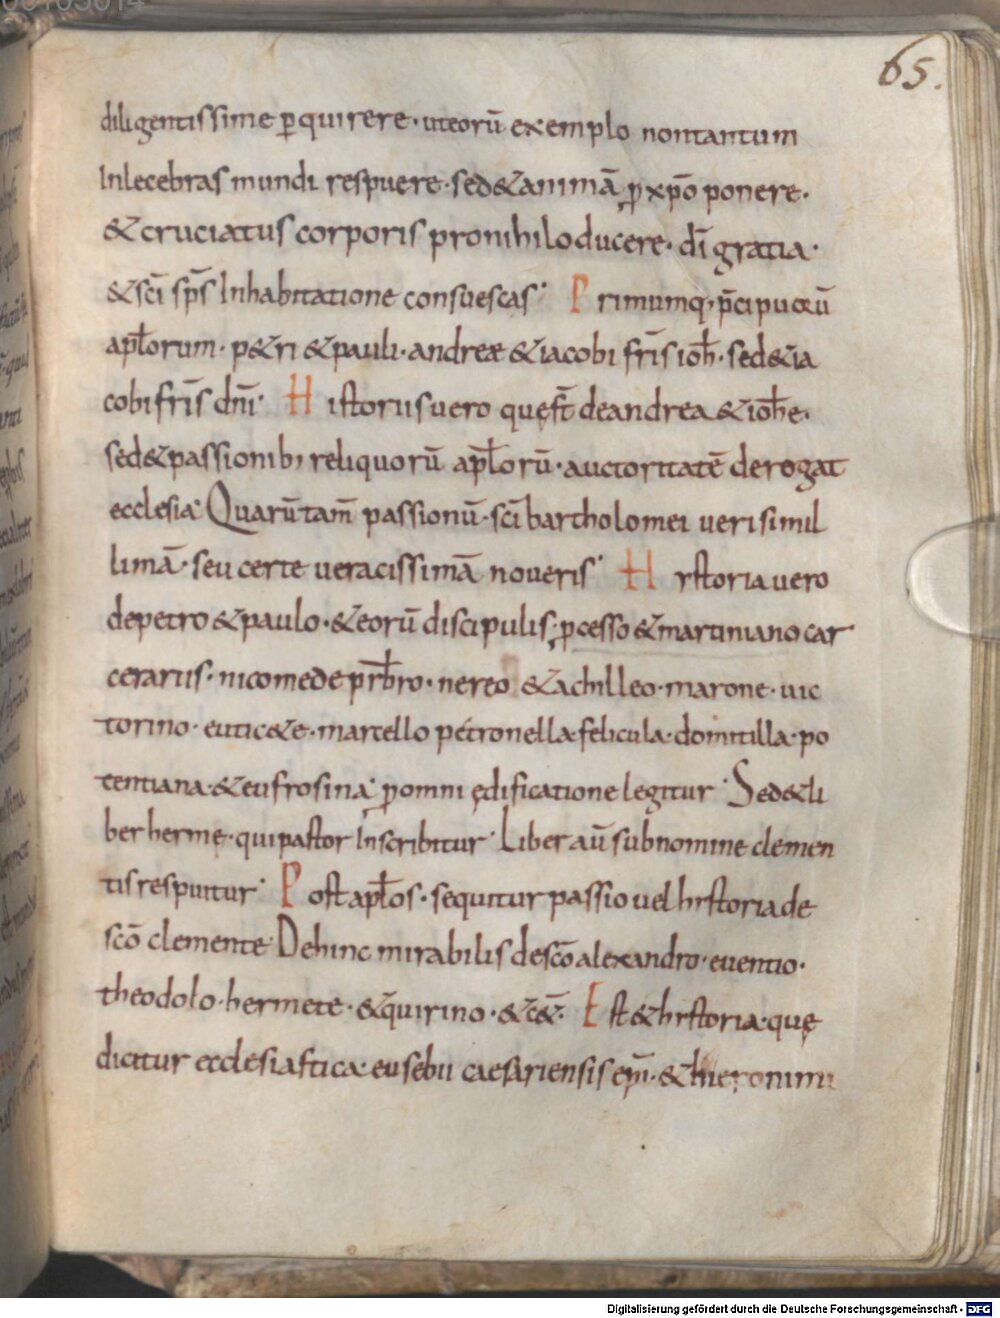 65.
diligentissime ꝑquirere · uteorū exemplo nontantum
Inlecebras mundi respuere · sed&animā ꝓ xp̄o ponere ·
&cruciatus corporis pronihiloducere · dī gratia ·
&sc̄i sp̄s Inhabitatione consuescas · Primumq; p̄cipuaeū
apl̄orum · p&ri &pauli · andreae &iacobi fr̄is ioh̄ · sed&ia
cobi fr̄is dn̄i · Historiis uero quęst̄ deandrea &ioh̄e ·
sed&passionib; reliquorū apl̄orū · auctoritatē derogat
ecclesia · Quarūtam̄ passionū · sc̄i bartholomei uerisimil
limā · seu certe ueracissimā noueris · Historia uero
depetro &paulo · &eorū discipulis · ꝓcesso &martiniano car
cerariis · nicomede prb̄ro · nereo &achilleo · marone · uic
torino · eutic&e · martello petronella · felicula · domitilla · po
tentiana · &eufrosina · ꝓ omni ędificatione legitur · Sed&li
ber hermę · qui pastor Inscribitur · Liber aū sub nomine clemen
tis respuitur · Post apl̄os · sequitur passio uel historia de
sc̄o clemente · Dehinc mirabilis desc̄o alexandro · euentio ·
theodolo · hermete · &quirino · &c&̄ · Est &historia · quę
dicitur ecclesiastica · eusebii caesariensis ep̄i · &hieronimi
Digitalisierung gefördert durch die Deutsche Forschungsgemeinschaft - DFG